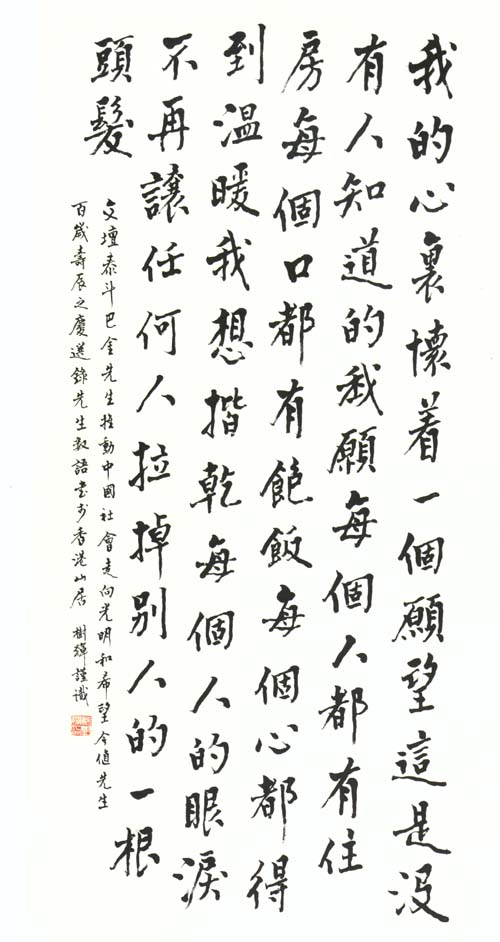 我的心裏懷着一個願望這是沒
有人知道的我願每個人都有住
房每個口都有飽飯每個心都得
到溫暖我想揩乾每個人的眼淚
不再讓任何人拉掉別人的一根
頭髮
文壇泰斗巴金先生推動中國社會走向光明和希望今值先生
百歲壽辰之慶選錄先生數語書於香港山居 樹輝謹識